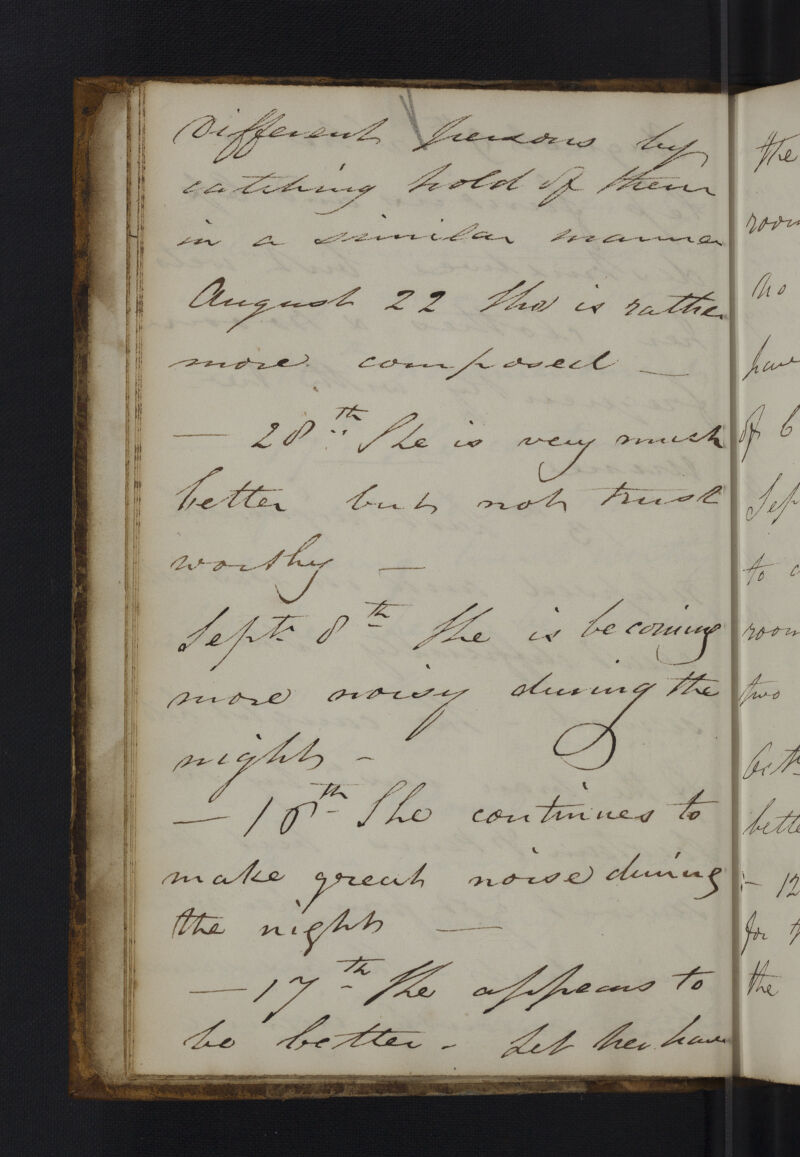 Different persons by
catching hold of them
in a similar manner
August 22 She is rather
more composed —
— 28th She is very much
better but not trust
worthy —
Septr 8th She is becoming
more noisy during the
night -
— 10th She continues to
make great noise during
the night —
— 17th She appears to
be better - Let her have
the
room
no
have
of
Sep
to
room
two
Octr
bette
- 12
for
the